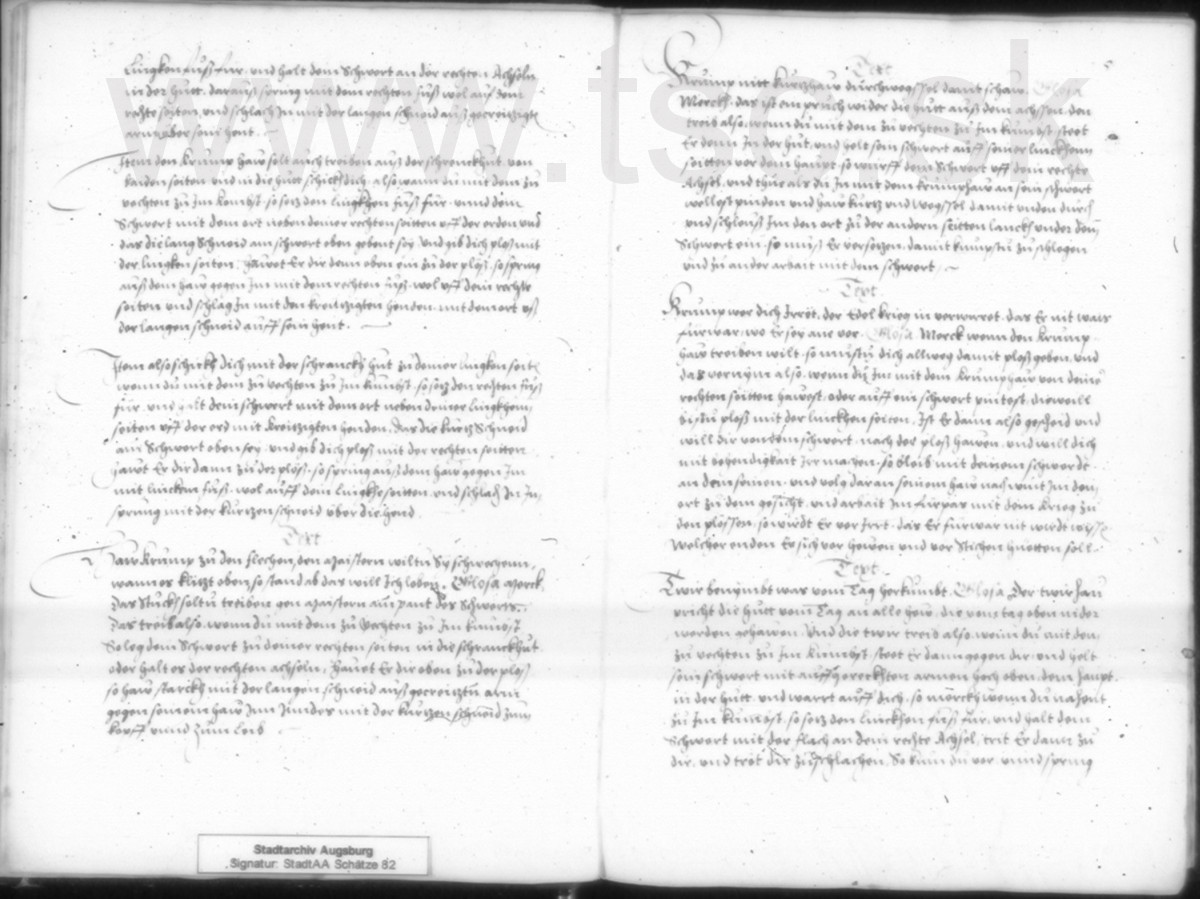 lingken fuß für, und halt dein Schwert an der rechten Achseln
in der hutt, darauß spring mit dem rechten fuß wol auf dein
rechte seiten, und schlach In mit der langen schneid auß gecreutzigte
arm über sein hent
Item den krump haw solt auch treiben auß der schranckhut, von
baiden seiten und in die hutt schickh dich also wann du mit dem zu
vechten zu Im kombst, so setz den lingkhen fuß für unnd dein
Schwert mit dem ort neben deiner rechten seitten uff der erden und
das die lang Schneid am schwert oben gehent sey und gib dich ploß mit
der lingken seiten, hawet Er dir denn oben ein zu der ploß, so spring
auß dem haw gegen Im mit dem rechten fuß wol uff dein rechte
seiten und schlag In mit den kreitzigten henden mit dem ort uß
der langen schneid auff sein hent
Item also schickh dich mit der schranckh hut zu deiner lingken seit
wenn du mit dem zu vechten zu Im kumbst, so setz den rechten fuß
für, und halt dein schwert mit dem ort neben deiner lingkhen
seiten uff der erd mit kreitzigten henden, das die kurtz Schneid
am Schwert oben sey und gib dich ploß mit der rechten seitten
hawt Er dir dann zu der ploß, so spring auß dem haw gegen Im
mit linckem fuß, wol auff dein lingkhe seitten und schlach In Im
sprung mit der kurtzen schneid über die hend
Text
Haw krump zu den flechen, den maistern wiltu Sy schwechenn
wann es klitzt oben, so stand ab das will Ich loben, Glosa Merck
Das Stuckh soltu treiben gen maistern am pant des Schwerts
Das treib also, wenn du mit dem zu Vechten zu Im kumbst
So leg dein Schwert zu deiner rechten seiten in die schranckhut
oder halt es der rechten achseln, hauet Er dir oben zu der ploß
so haw starckh mit der langen schneid auß gecreutztn arm
gegen seinem haw Inn Indes mit der kurtzen schneid zum
kopff unnd zum leib
Text
Krump nitt kurtzhaw durchwechssel damit schaw Glosa
Merckh, das ist ein pruch wider die hutt auß dem achssen, den
treib also, wenn du mit dem zu vechten zu Im kumbst, steet
Er denn In der hut, und helt sein schwert auff seiner linckhenn
seitten vor dem haupt, so wurff dein Schwert uff dein rechte
Achsel, und thue als du In mit dem krumphaw an sein schwert
wellest pinden und haw kurtz und wechssel damit unden durch
und scheuß In den ort zu der andern seitten lanckh under dem
Schwert ein, so muß Er versetzen, damit kumpstu zu schlegen
und zu ander arbeit mit dem schwert
Text
Krump wer dich Irret, der Edel krieg in verwirret, das Er nit wais
fürwar, wo Er sey ane vor, Glosa Merck wenn den krump
haw treiben wilt, so mustu dich allweg damit ploß geben, und
das vernym also, wenn du Im mit dem krumphaw von deine
rechten seitten hawest, oder auff ein schwert pintest, dieweill
bistu ploß mit der linckhen seiten, Ist Er dann also gescheid und
will dir von dem schwert, nach der ploß hawen, und will dich
mit behendigkait Irr machen, so bleib mit deinem schwerdt
an dem seinen, und volg daran seinem haw nach wint Im den
ort zu dem gesicht, und arbeit Im fürpas mit dem krieg zu
den plossen, so wirdt Er ver Irrt, das Er fürwar nit wirdt wyssn
Welcher enden Er sich vor hewen und vor Stichen huetten soll
Text
Twir benymbt was vom Tag herkumbt Glosa Der twir haw
pricht die hutt vom Tag an alle hew, die vom tag oben nider
werden gehawen, Und die twer treib also, wenn du mit dem
zu vechten zu Im kumbst, steet Er dann gegen dir, und helt
sein schwert mit auffgereckhten armen hoch oben dem haupt
in der hutt, und wartt auff dich, so merckh wenn du nahent
zu Im kumbst, so setz den linckhen fuß für, und halt dein
Schwert mit der flach an dein rechte Achsel, trit Er dann zu
dir, und tret dir zu schlachen, So kum du vor, unnd spring
Stadtarchiv Augsburg
Signatur: StadtAA Schätze 82
www.tsc.sk